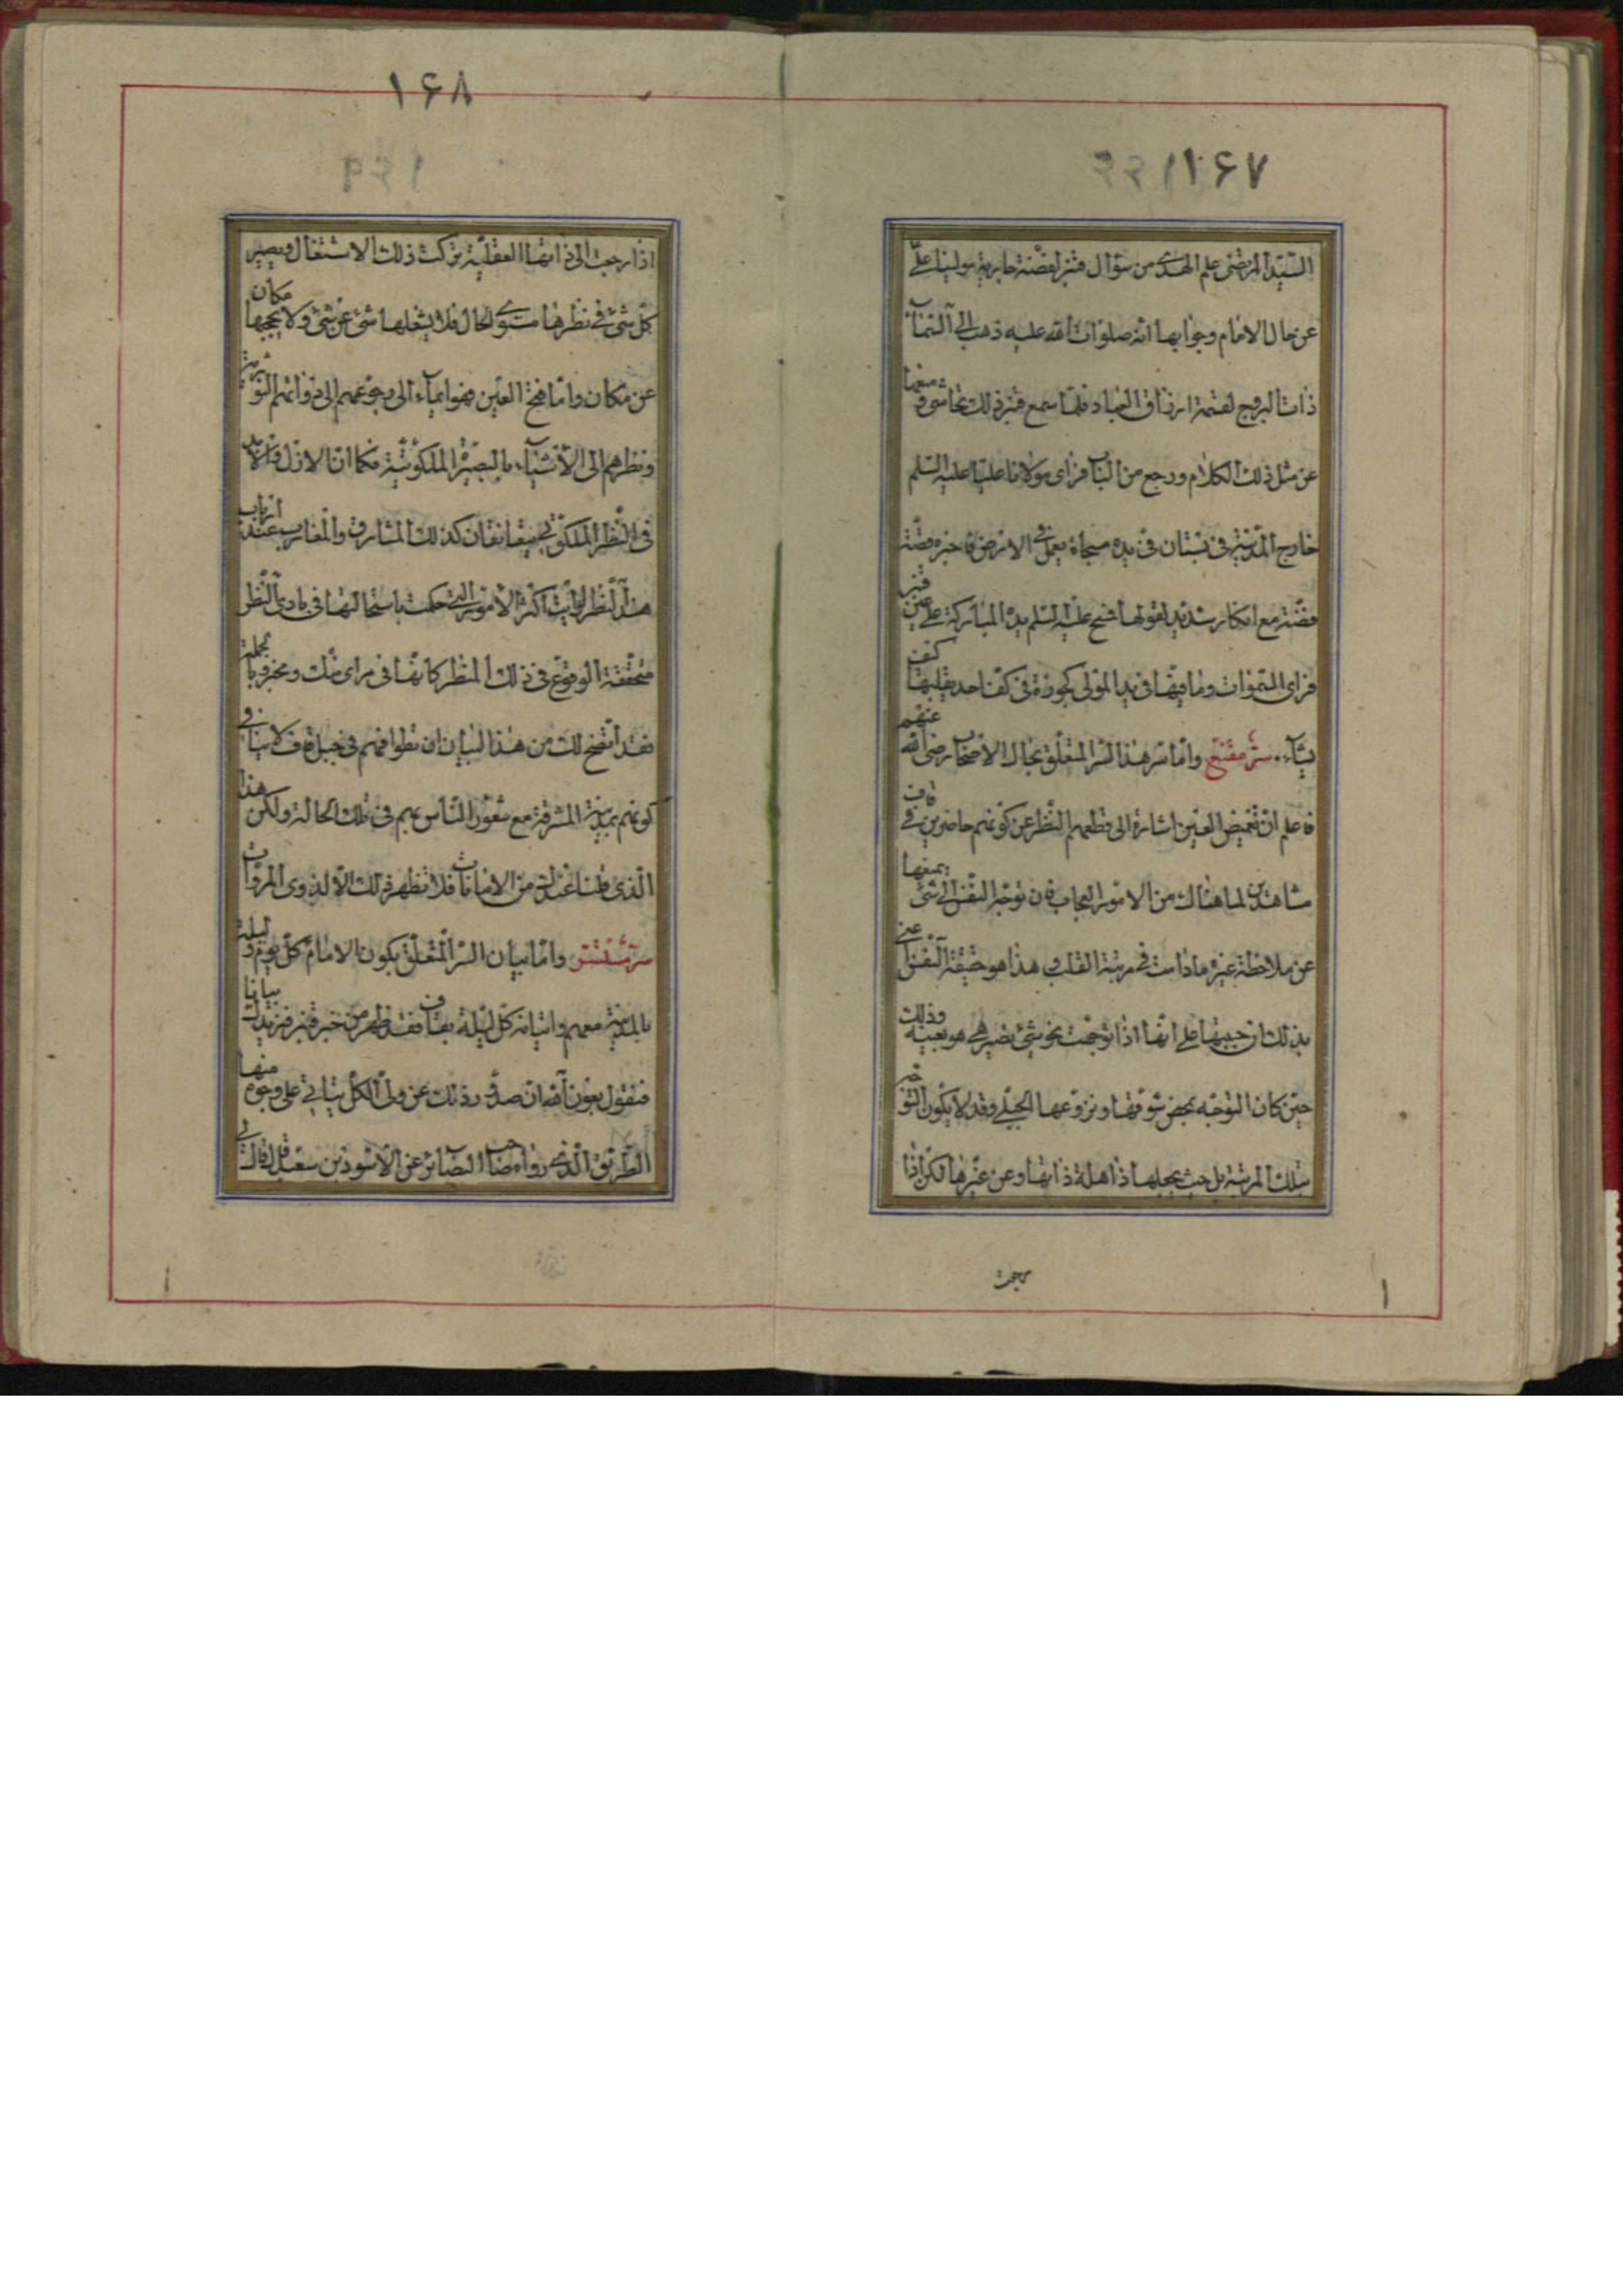 ۱۶۷
السّيّد المرتضى علم الهدى من سؤال قنبر لفضّة جارية مولينا علىّ
عن حال الامام وجوابها انّه صلوات الله عليه ذهب الى السّماء
ذات البروج لقسمة ارزاق العباد فلمّا سمع قنبر ذلك تحاشى و منعها
عن مثل ذلك الكلام ورجع من الباب فراى مولانا عليّا عليه السّلم
خارج المدينة فى بستان فى يده مسحاة يعمل فى الارض فاخبره قصّة
فضّة مع انكار شديد لقولها فمسح عليه السّلم يده المباركة على عين قنبر
فراى السّموات وما فيها فى يد المولى كجوزة فى كفّ احد يقلبها كيف
يشاء. سرّ مقنّع وامّا سرّ هذا السّرّ المتعلّق بحال الاصحاب رضى الله عنهم
فاعلم انّ تغميض العين اشارة الى قطعهم النّظر عن كونهم حاضرين فى قاف
مشاهدين لما هناك من الامور العجاب فان توجّه النّفس الى شئ يمنعها
عن ملاحظة غيره مادامت فى مرتبة القلب و هذا هو حقيقة النّفس اعنى
بذلك ان جبلتها على انّها اذا توجّهت نحو شئ تصير هى هو بعينه وذلك
حين كان التوجّه بمحض شوقها ونزوعها الجبلّى وقد لا يكون التوجّه
بتلك المرتبة بل حيث يجعلها ذاهلة ذاتها وعن غيرها لكن اذا
رجعت
۱۶۸
اذا رجعت الى ذاتها العقليّة تركت ذلك الاشتغال ويصير
كلّ شئ فى نظرها مستوى الحال فلا يشغلها شئ عن شئ ولا يحجبها مكان
عن مكان وامّا فتح العين فهو ايماء الى رجوعهم الى ذواتهم النّوريّة
ونظرهم الى الاشياء بالبصيرة الملكوتيّة فكما انّ الازل والابد
فى النّظر الملكوتى يتعانقان كذلك المشارق والمغارب عند ارباب
هذا النّظر لرايت اكثر الامور الّتى حكمت باستحالتها فى بادى النّظر
متحقّقة الوقوع فى ذلك المنظر كانّها فى مراى منك ومخبر وبالجملة
فقد اتّضح لك من هذا البيان ان تطوافهم فى جبل قاف لا ينافى
كونهم بمدينة المشرفة مع شعور النّاس بهم فى تلك الحالة ولكن هذا
الّذى قلنا عندك من الامانات فلا تظهر ذلك الّا لذوى المروّات
سرّ مستسرّ وامّا بيان السّرّ المتعلّق بكون الامام كلّ يوم و ليلة
بالمدينة معهم واتيانه كلّ ليلة بقاف فقد ظهر من خبر قنبر فنزيدك بيانا
فنقول بعون الله انّ صدور ذلك عن ولىّ الكلّ يتاتى على وجوه منها
الطّريق الّذى رواه صاحب البصائر عن الاسود بن سعيد قال قال لى